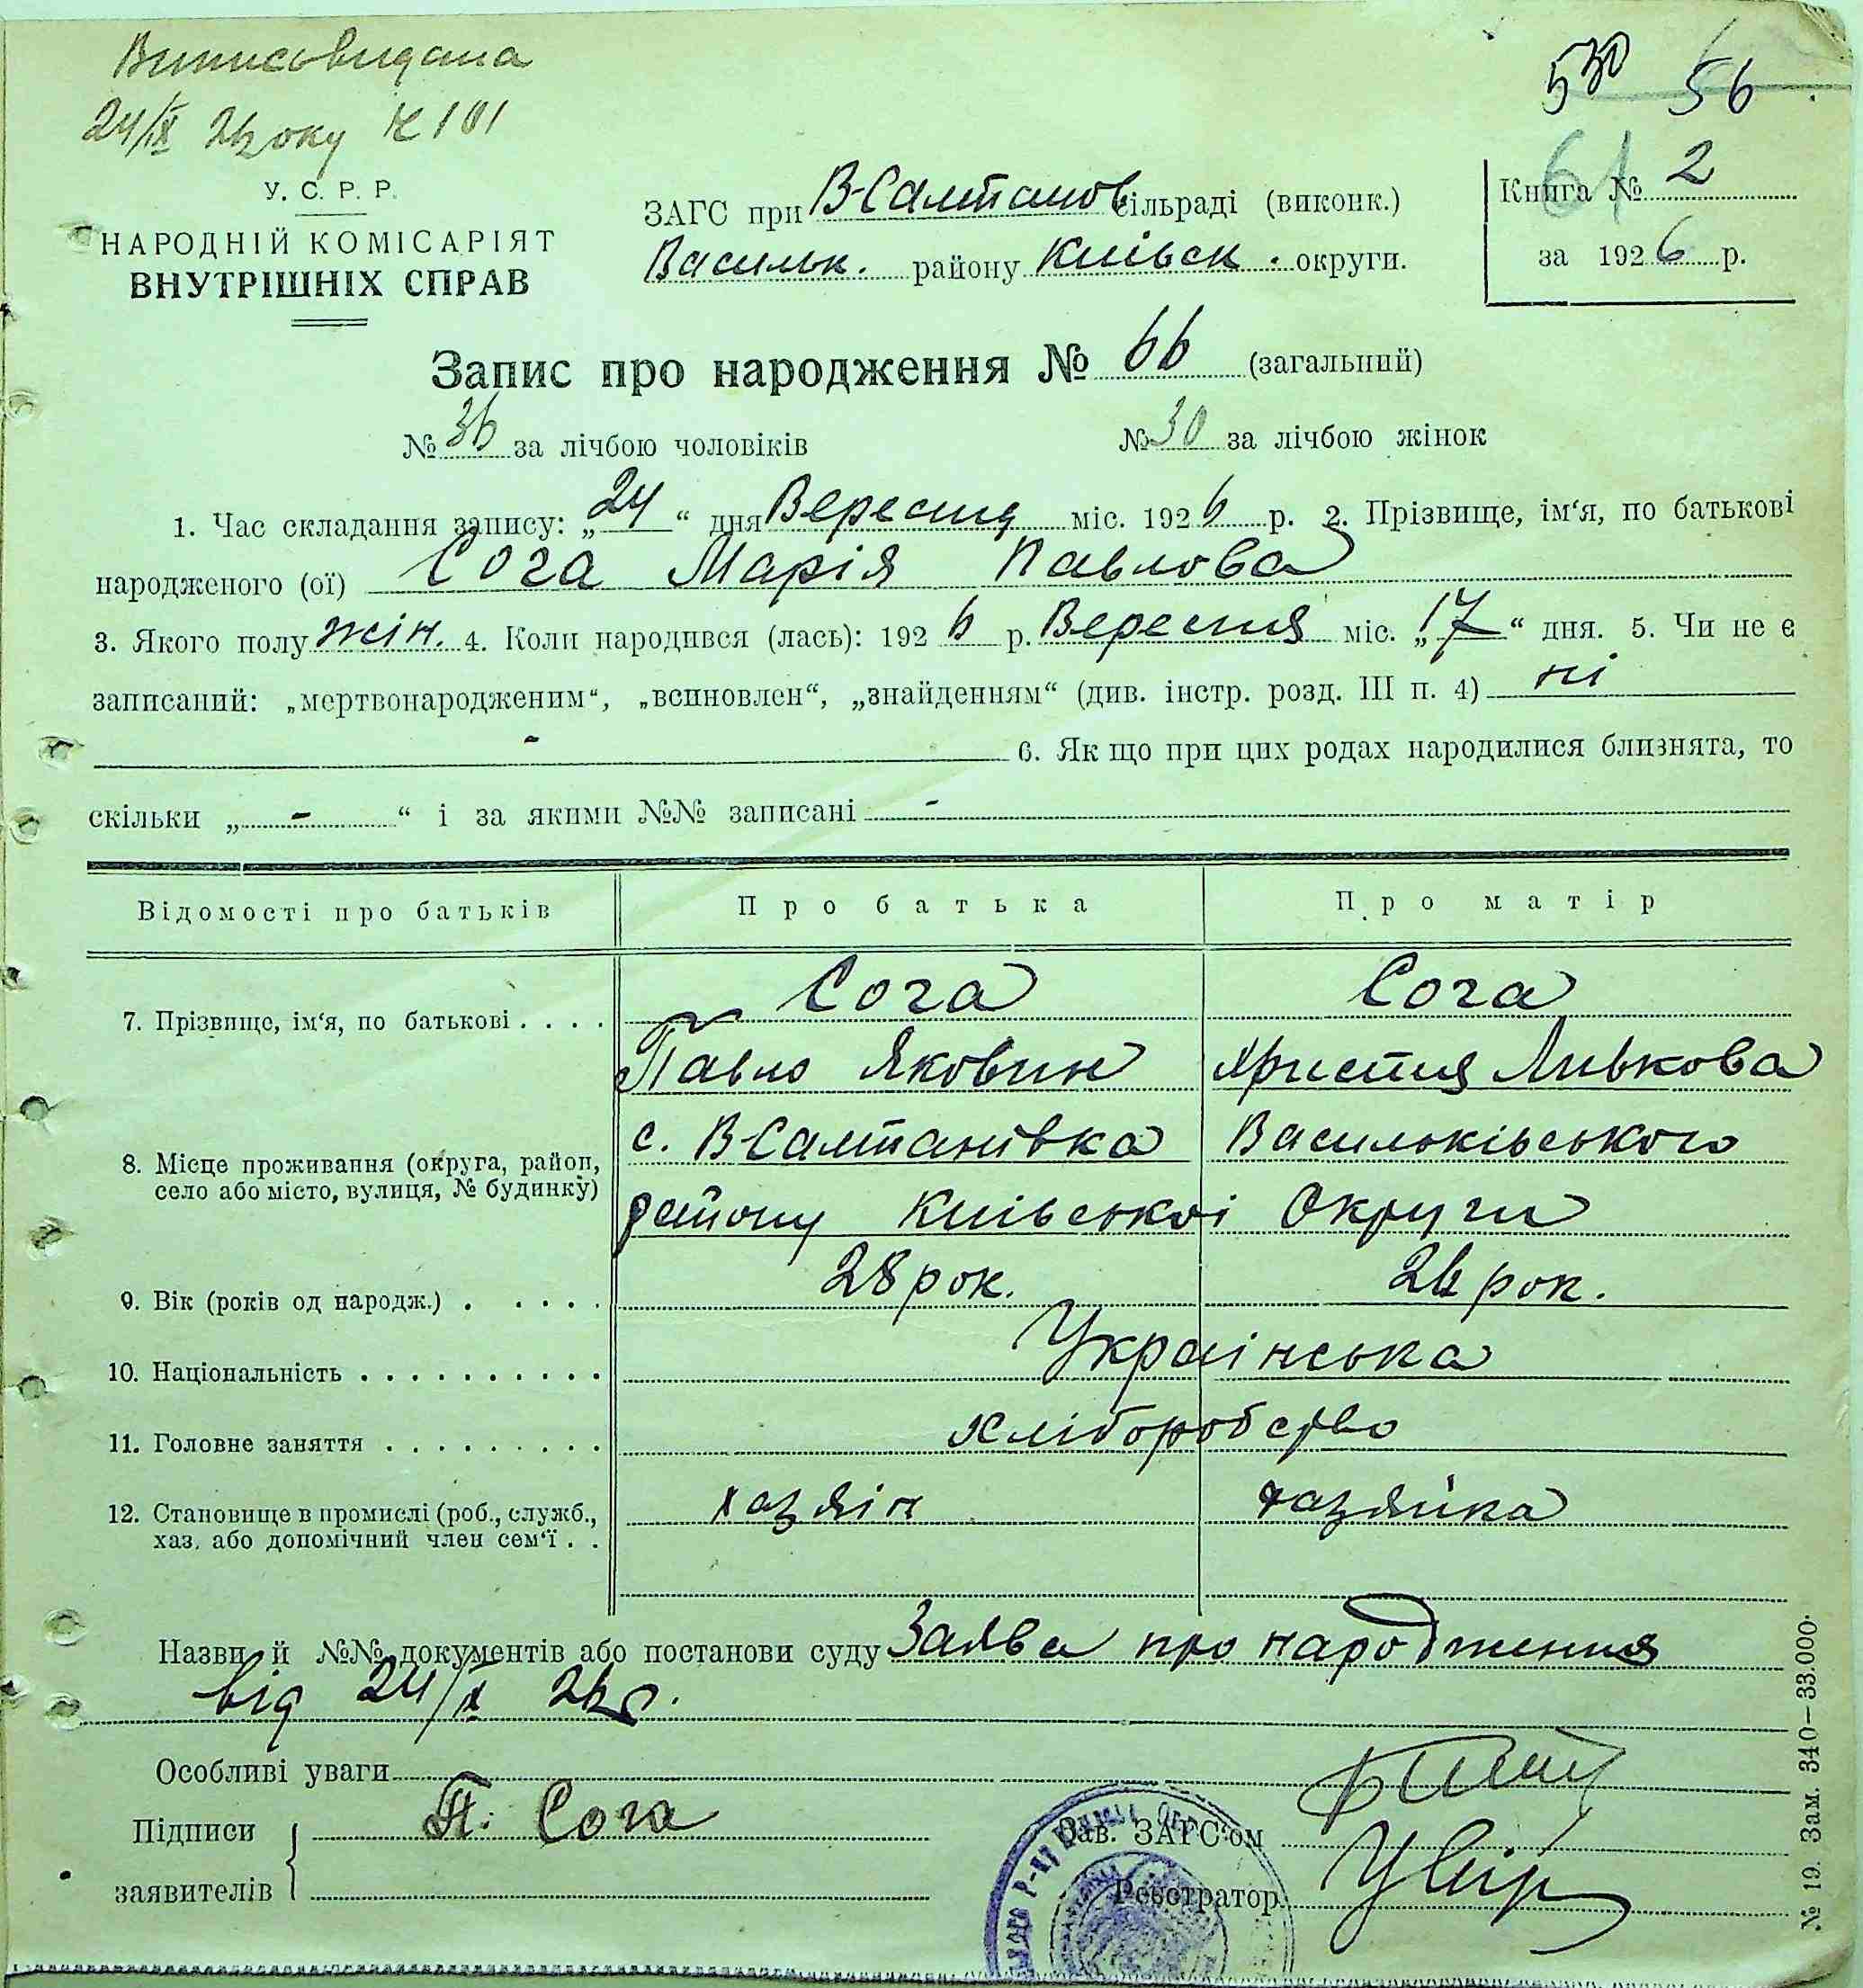 Виписовидана
24/IX 26 року № 101
530 56
61
У. С. Р. Р.
НАРОДНІЙ КОМІСАРІЯТ
ВНУТРІШНІХ СПРАВ
ЗАГС при В-Салтанов сільраді (виконк.)
Васильк. району Київськ. округи.
Книга № 2
за 1926 р.
Запис про народження № 66 (загальний)
№ 36 за лічбою чоловіків № 30 за лічбою жінок
1. Час складання запису: „24“ дня Вересня міс. 1926 р. 2. Прізвище, ім‘я, по батькові
народженого (ої) Сога Марія Павлова
3. Якого полу жін. 4. Коли народився (лась): 1926 р. Вересня міс. „17“ дня. 5. Чи не є
записаний: „мертвонародженим“, „всиновлен“, „знайденням“ (див. інстр. розд. III п. 4) ні
- 6. Як що при цих родах народилися близнята, то
скільки „ - “ і за якими №№ записані -
Відомості про батьків Про батька Про матір
7. Прізвище, ім‘я, по батькові . . . . Сога Сога
Павло Яковин ХристияЛивкова
8. Місце проживання (округа, район, с. В-Салтанівка Васильківського
село або місто, вулиця, № будинку) району Київської Округи
9. Вік (років од народж.) . . . . . 28 рок. 26 рок.
10. Національність . . . . . . . . . . Українська
11. Головне заняття . . . . . . . . . Хліборобство
12. Становище в промислі (роб., служб., хазяін хазяйка
хаз. або допомічний член сем‘ї . .
Назви й №№ документів або постанови суду Заява про народження
від 24/IX 26 р.
Особливі уваги
Підписи П. Сога Зав. ЗАГС‘ом
заявителів Реєстратор
№ 19. Зам. 340—33.000.